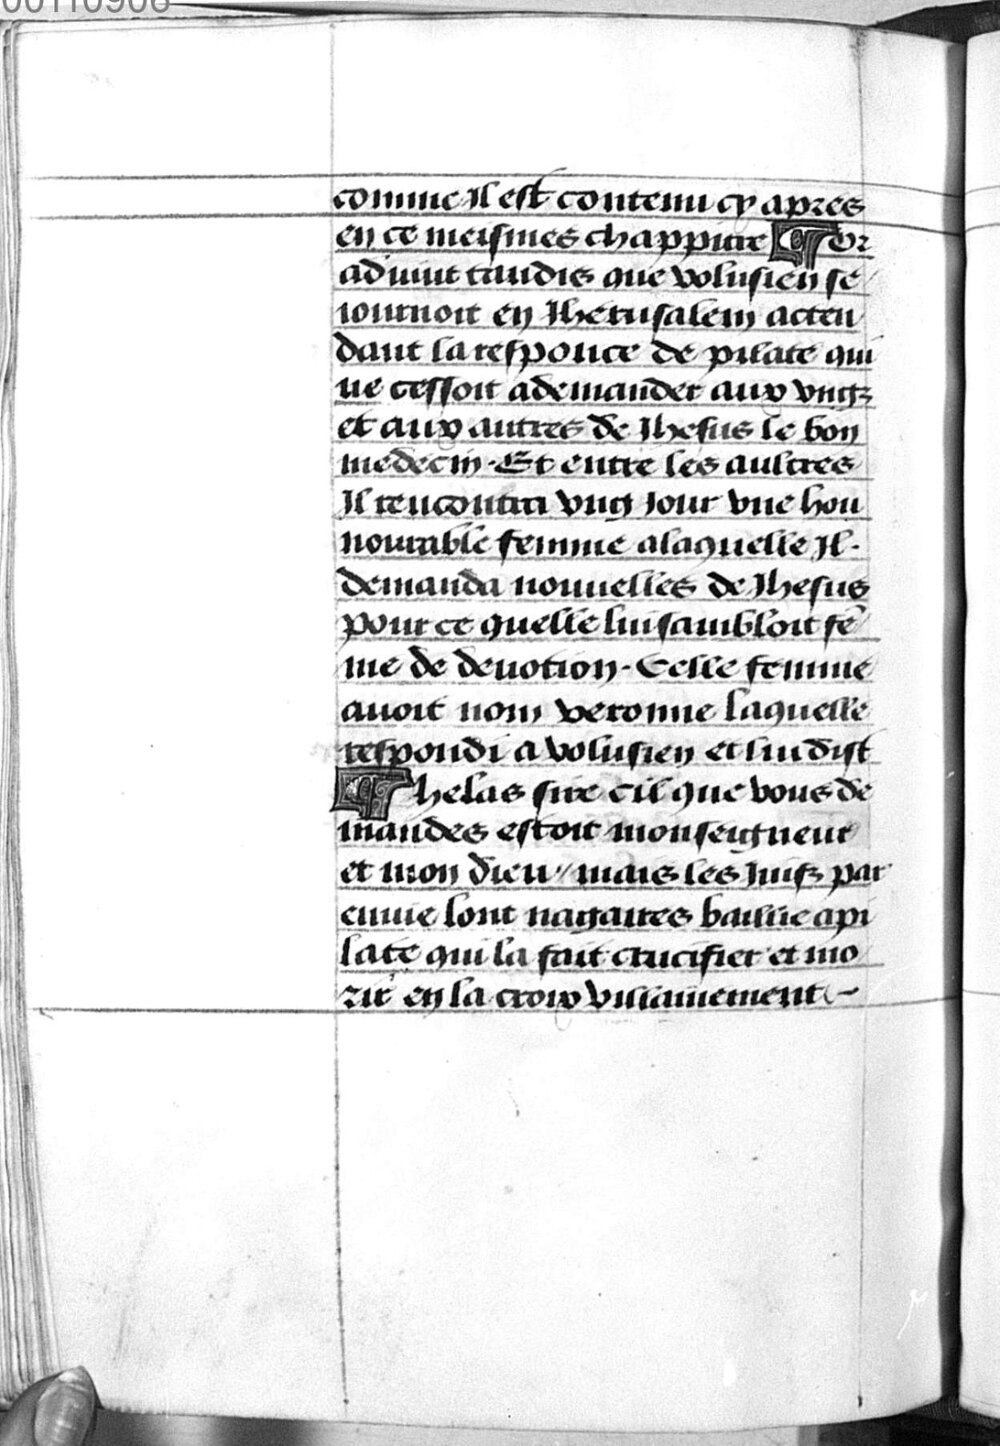 00110908
comme Il est contenu cy apres
en ce meismes chappitre ¶ Or
aduint tandis que volusien se
iournoit en Iherusalem acten
dant la responce de pilate qui
ne cessoit ademander aux vngz
et aux autres de Ihesus le bon
medecin · Et entre les aultres
Il rencontra vng Iour vne hon
nourable femme alaquelle Il ·
demanda nouuelles de Ihesus
pour ce quelle lui sambloit fē
me de deuotion · Celle femme
auoit nom veronne laquelle
respondi a volusien et lui dist
¶ helas sire cil que vous de
mandes estoit monseigneur
et mon dieu // mais les Iuifz par
enuie lont nagaires baillie api
late qui la fait crucifier et mo
rir en la croix villainement